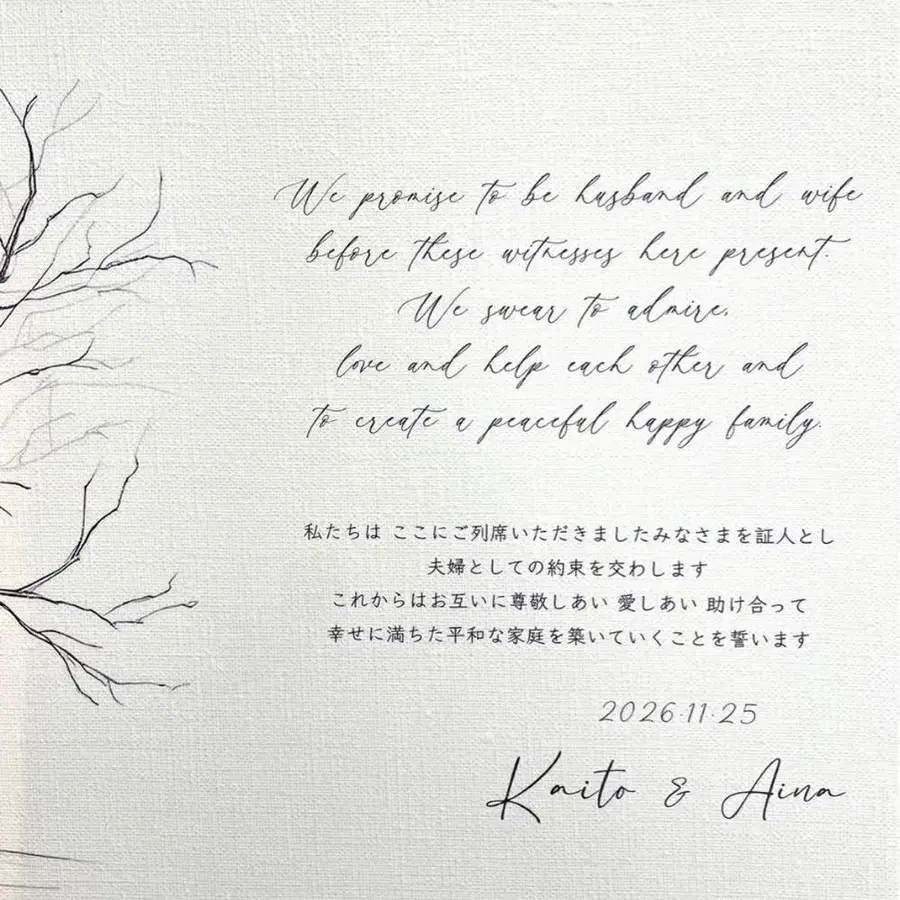 We promise to be husband and wife
before these witnesses here present.
We swear to admire,
love and help each other and
to create a peaceful happy family.
私たちは ここにご列席いただきましたみなさまを証人とし
夫婦としての約束を交わします
これからはお互いに尊敬しあい 愛しあい 助け合って
幸せに満ちた平和な家庭を築いていくことを誓います
2026.11.25
Kaito & Aina